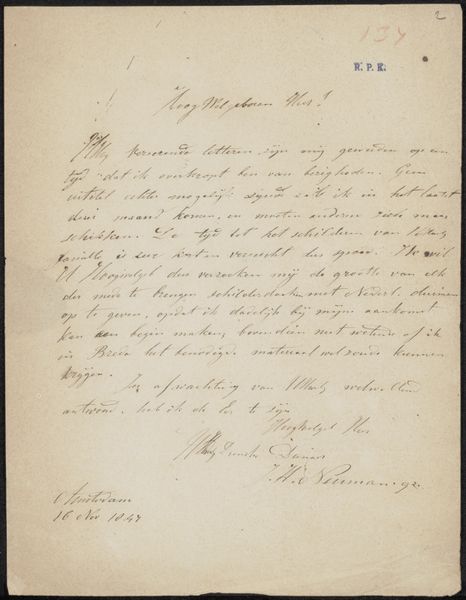 2
134
R. P. K.
Hoog Wel geboren Heer!
letteren zijn mij geworden op een
tijd dat ik overkropt ben van bezigheden. Geen
uitstel echter mogelijk zijnde zal ik in het laatst
deze maand komen, en moeten anderen zich maar
schikken. De tijd tot het schilderen van
familie is
U Hoogwelgeb dus verzoeken mij de grootte van elk
der mede te brengen schilderdoeken met Nederl. duimen
op te geven, opdat ik dadelijk bij mijne aankomst
kan een begin maken, bovendien niet wetende of ik
in Breda het benoodigd materiaal wel zoude kunnen
krijgen.
In afwachting van welwillend
antwoord, heb ik de Eer te zijn
Hoogwelgeb Heer
Dienaar
J. H. Neuman
Amsterdam
16 Nov 1847